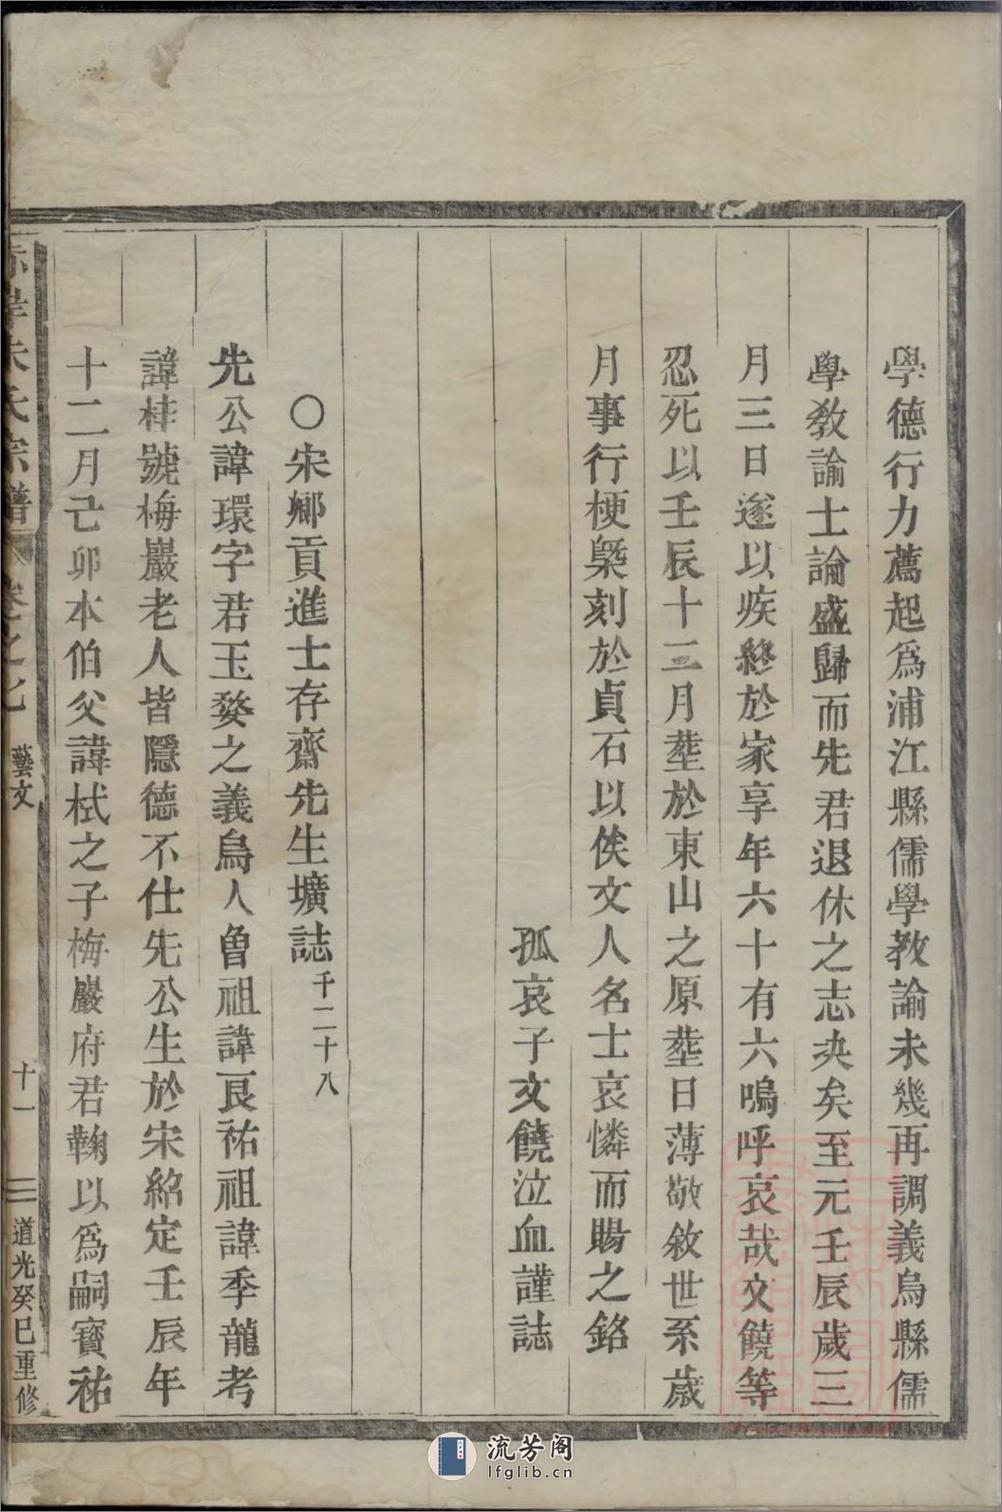 學德行力薦起爲浦江縣儒學教諭未幾再調義烏縣儒
學教諭士論盛歸而先君退休之志决矣至元壬辰歲三
月三日遂以疾終於家享年六十有六嗚呼哀哉文饒等
忍死以壬辰十二月塟於東山之原塟日薄敬敘世系歲
月事行梗槩刻於貞石以俟文人名士哀憐而賜之銘
孤哀子文饒泣血謹誌
〇宋鄉貢進士存齋先生壙誌千二十八
先公諱環字君玉婺之義烏人曾祖諱艮祐祖諱季龍考
諱桂號梅巖老人皆隱德不仕先公生於宋紹定壬辰年
十二月己卯本伯父諱栻之子梅巖府君鞠以爲嗣寶祐
朱氏宗譜 卷之七 藝文 十一 道光癸巳重修
流芳阁
lfglib.cn